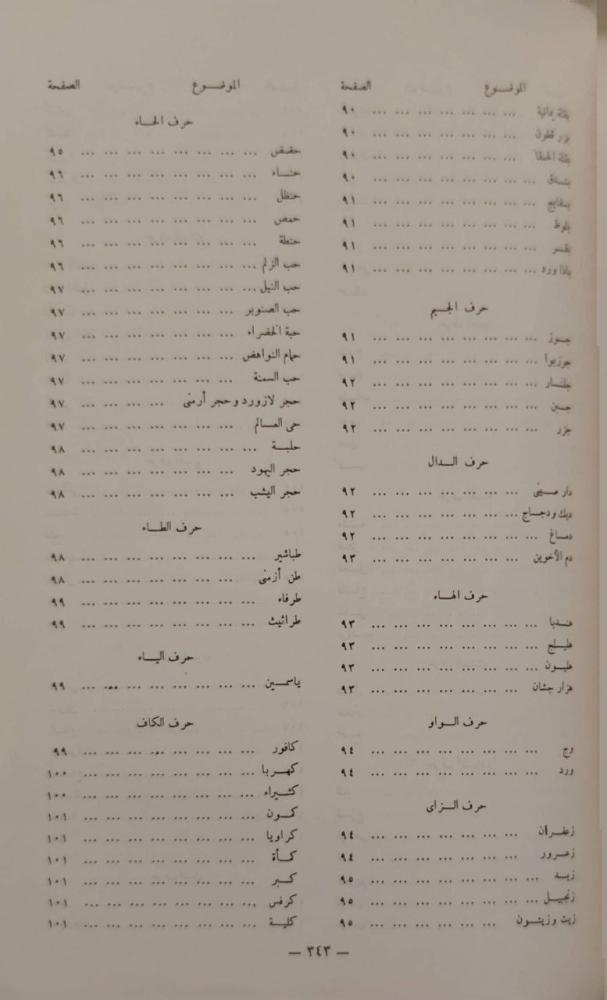 الموضوع الصفحة
بقلة يمانية ... ٩٠
بزر قطون ... ٩٠
بقلة الحمقا ... ٩٠
... ٩٠
بسفايج ... ٩١
بلوط ... ٩١
... ٩١
باذاورد ... ٩١
حرف الجيم
جوز ... ٩١
جوزبوا ... ٩١
جلنار ... ٩٢
جبن ... ٩٢
جزر ... ٩٢
حرف الدال
دار صينى ... ٩٢
ديك ودجاج ... ٩٢
دماغ ... ٩٢
دم الأخوين ... ٩٣
حرف الهاء
هندبا ... ٩٣
هليلج ... ٩٣
هليون ... ٩٣
هزار جشان ... ٩٣
حرف الواو
وج ... ٩٤
ورد ... ٩٤
حرف الزاى
زعفران ... ٩٤
زعرور ... ٩٤
زبد ... ٩٥
زنجبيل ... ٩٥
زيت وزيتون ... ٩٥
الموضوع الصفحة
حرف الحاء
حضض ... ٩٥
حناء ... ٩٦
حنظل ... ٩٦
حمص ... ٩٦
حنطة ... ٩٦
حب الزلم ... ٩٦
حب النيل ... ٩٧
حب الصنوبر ... ٩٧
حبة الخضراء ... ٩٧
حمام النواهض ... ٩٧
حب السمنة ... ٩٧
حجر لازورد وحجر أرمنى ... ٩٧
حى العالم ... ٩٧
حلبة ... ٩٨
حجر اليهود ... ٩٨
حجر اليشب ... ٩٨
حرف الطاء
طباشير ... ٩٨
طن أزمنى ... ٩٨
طرفاء ... ٩٩
طراثيث ... ٩٩
حرف الياء
ياسمين ... ٩٩
حرف الكاف
كافور ... ٩٩
كهربا ... ١٠٠
كثيراء ... ١٠٠
كمون ... ١٠١
كراويا ... ١٠١
كمأة ... ١٠١
كبر ... ١٠١
كرفس ... ١٠١
كلية ... ١٠١
— ٣٤٣ —